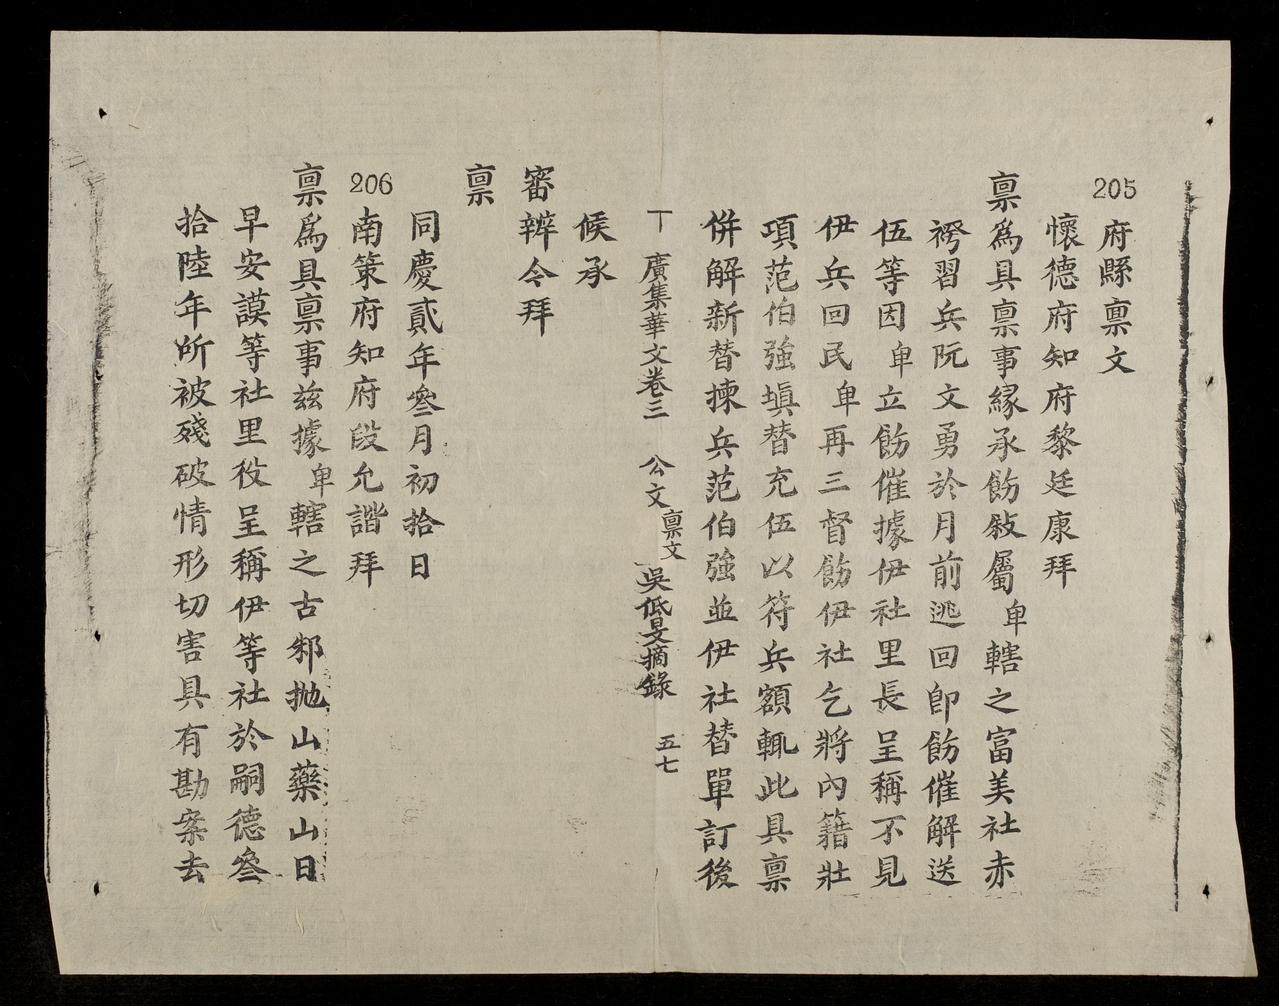 205
府縣稟文
懷德府知府黎廷康拜
稟爲具稟事縁承飭敍屬卑轄之富美社赤
褂習兵阮文勇於月前逃回卽飭催解送
伍等因卑立飭催據伊社里長呈稱不見
伊兵回民卑再三督飭伊社乞將內籍壯
項范伯強塡替充伍以符兵額輒此具稟
併解新替揀兵范伯強並伊社替單訂後
丅 廣集華文卷三 公文 稟文 吳低旻摘錄 五七
候承
審辨令拜
稟
同慶貳年叄月初拾日
206
南策府知府段允諧拜
稟爲具稟事茲據卑轄之古邾拋山藥山日
早安謨等社里役呈稱伊等社於嗣德叄
拾陸年所被殘破情形切害具有勘案去